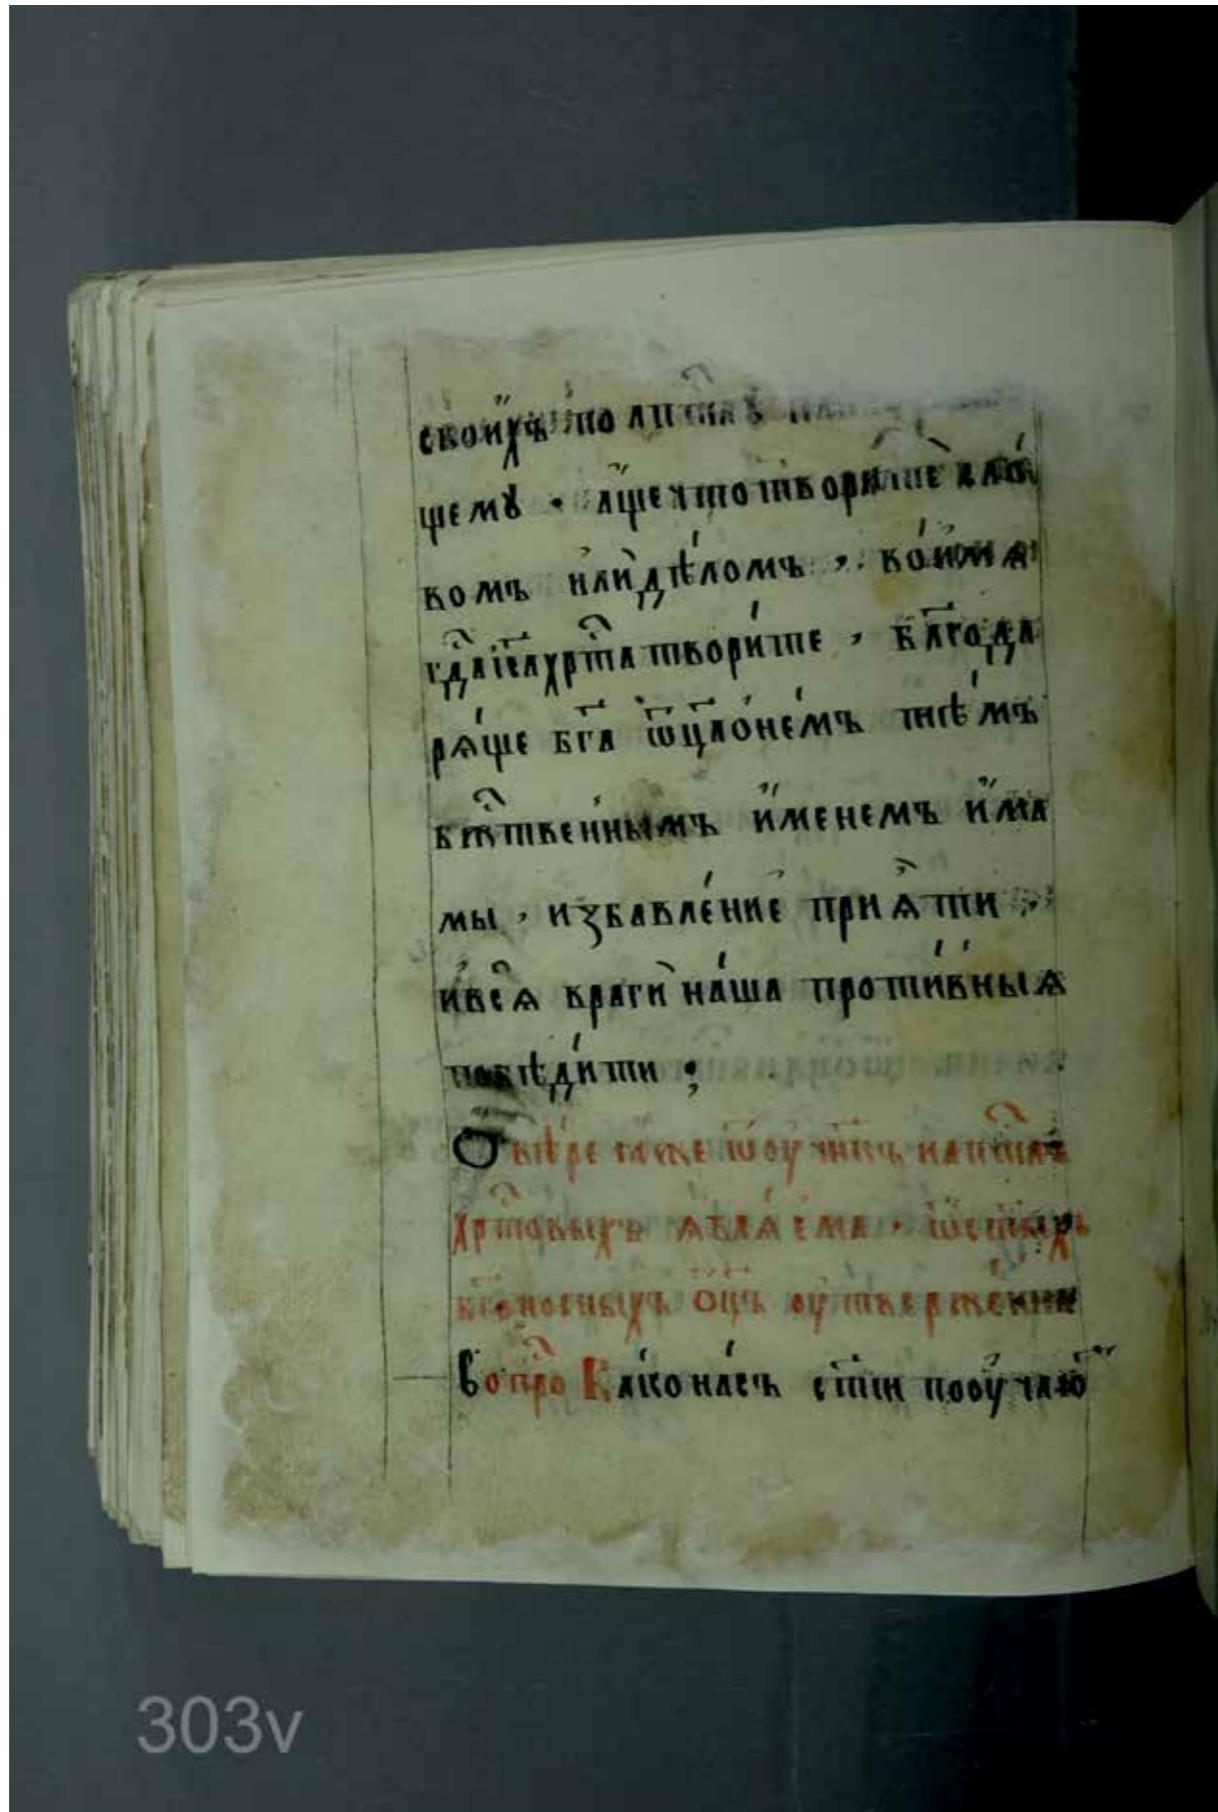 своиⷯъ по апⷭ҇лꙋ
щемꙋ · аще что творите
комъ или дѣломъ , во имѧ
гдⷭ҇а іс҃а хрⷭ҇та творите , бл҃года
рѧще бг҃а ѿц҃а о нем тѣмъ
бжⷭ҇твеннымъ именемъ има
мы , избавленїе приѧти ,
и всѧ враги наша противныѧ
побѣдити ;
О вѣре
хрⷭ҇товыхъ ѧвлѧема · ѿ ст҃ыхъ
бг҃оносныхъ ѻц҃ъ оутвержении
вопроⷭ҇ Како насъ ст҃ии пооучаюⷮ
303v